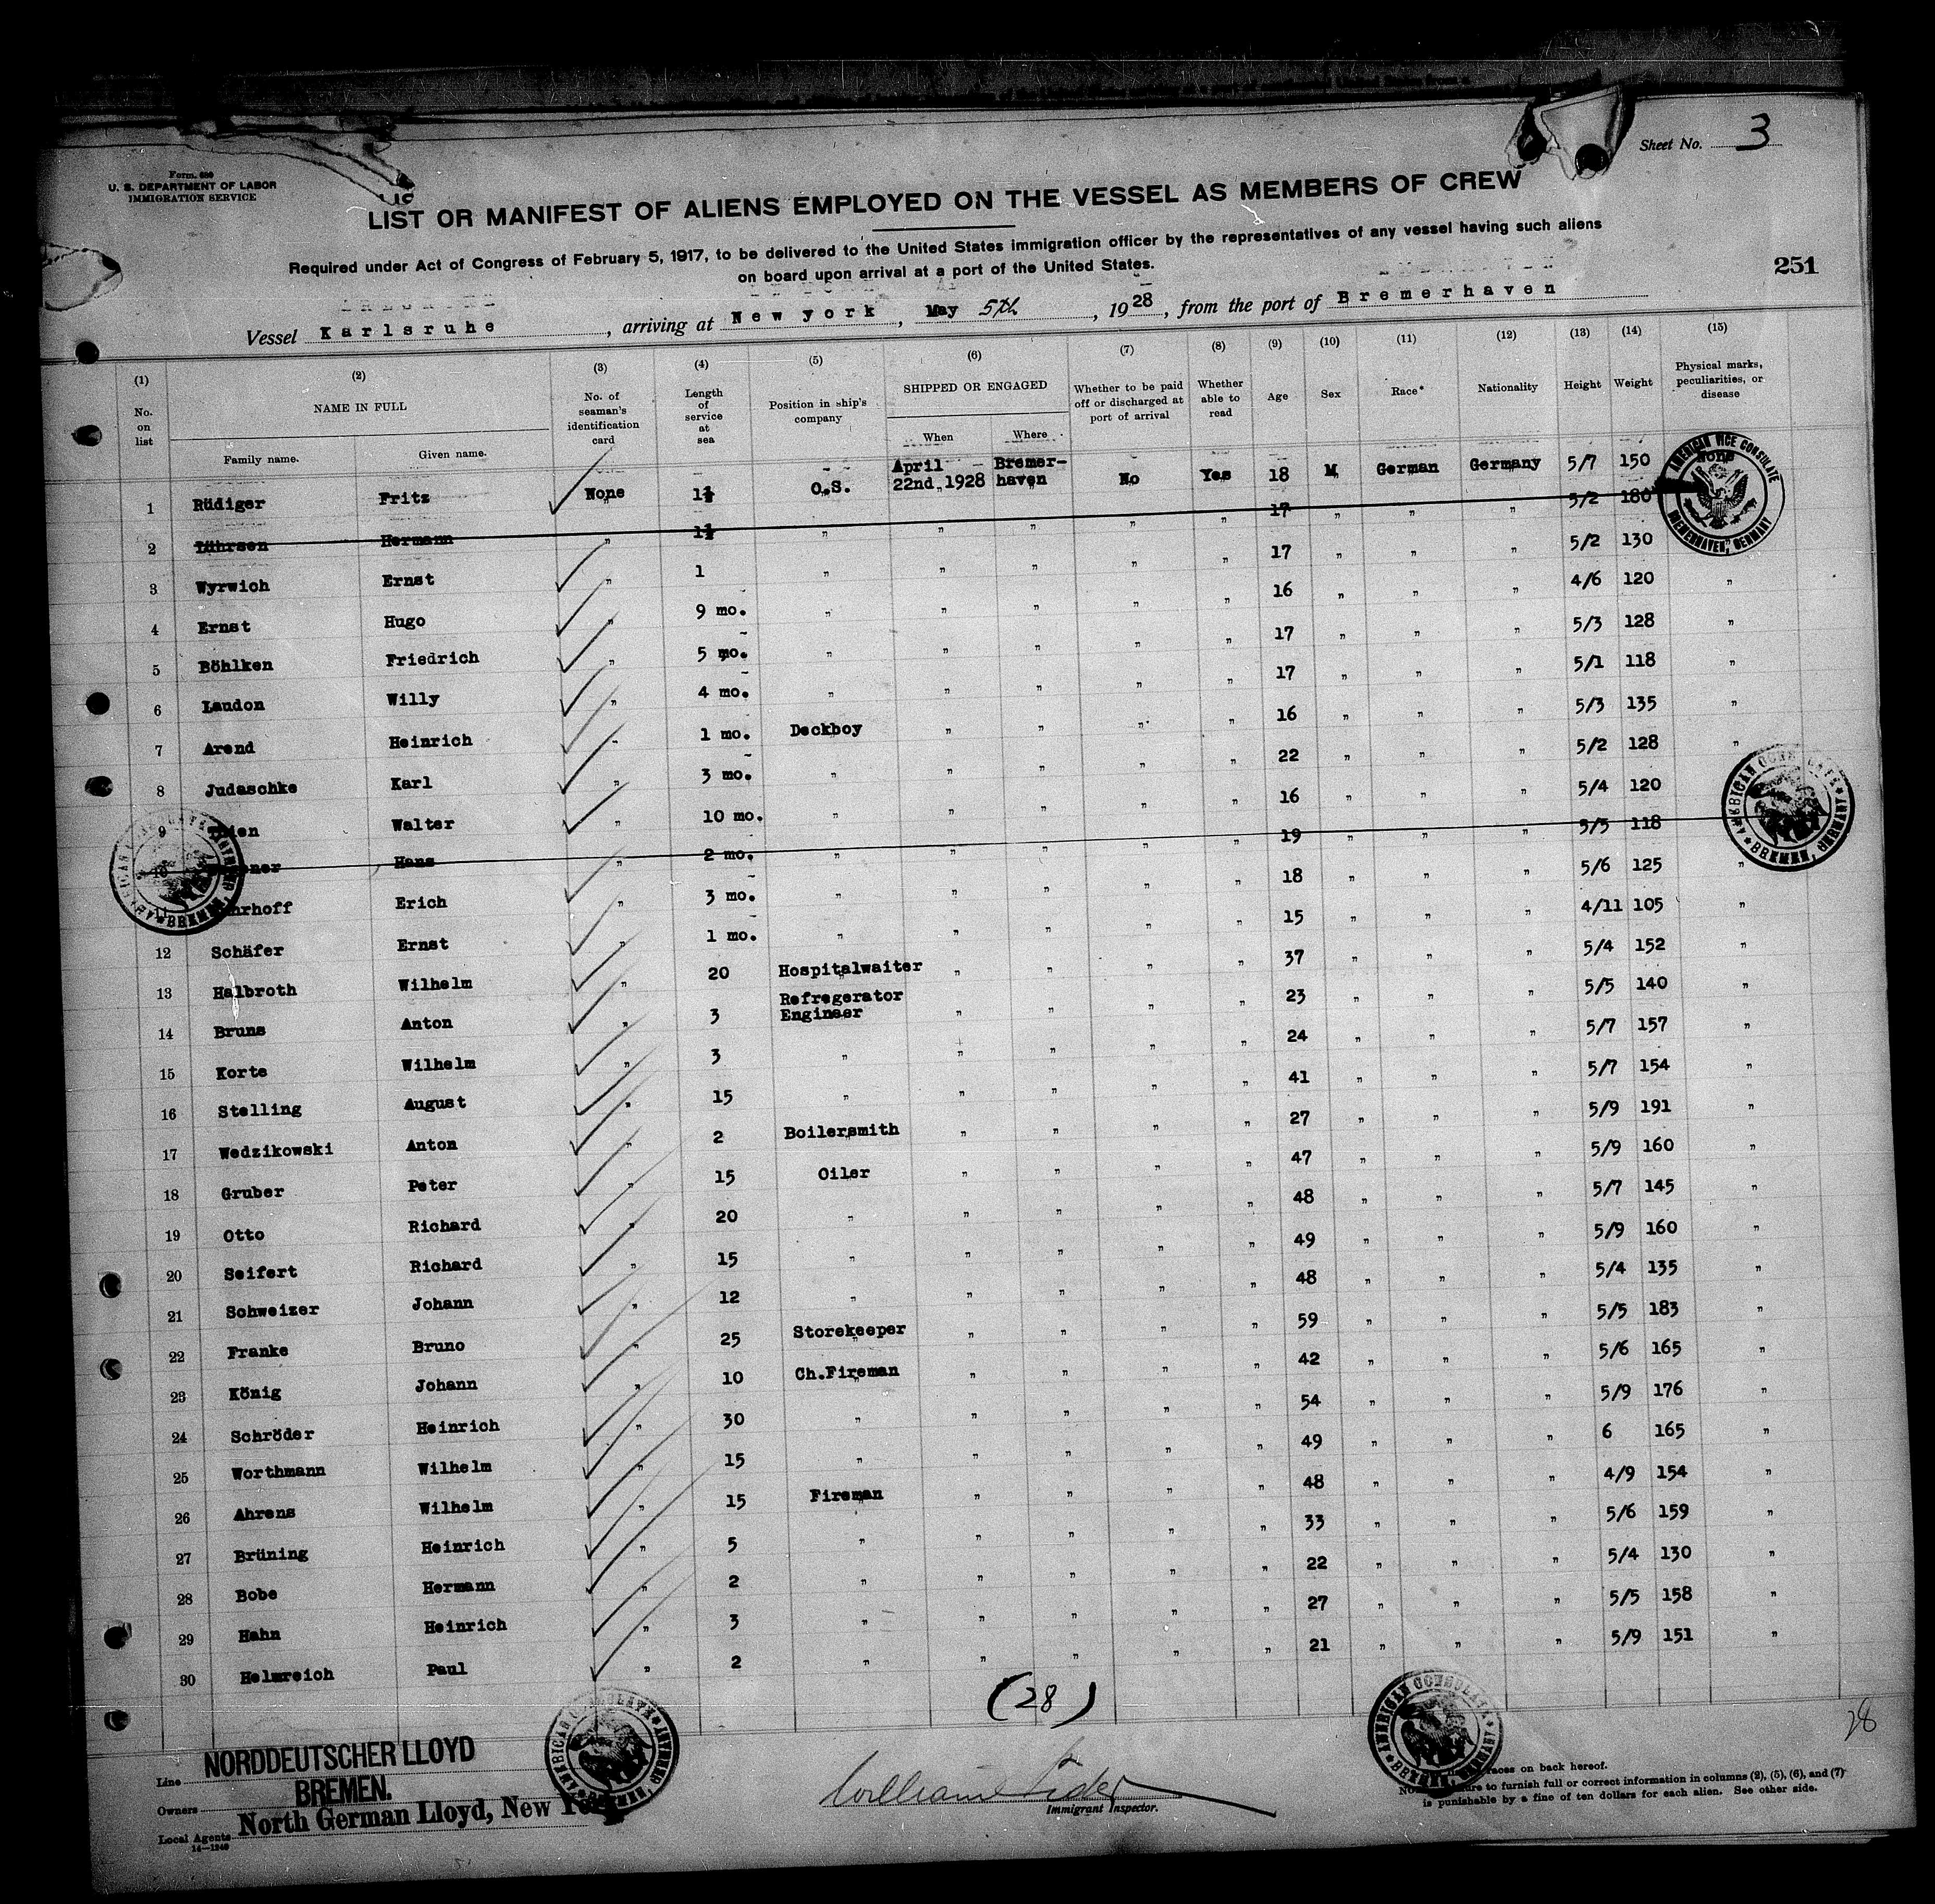 Sheet No. 3
Form 680
U. S. DEPARTMENT OF LABOR
IMMIGRATION SERVICE
LIST OR MANIFEST OF ALIENS EMPLOYED ON THE VESSEL AS MEMBERS OF CREW
Required under Act of Congress of February 5, 1917, to be delivered to the United States immigration officer by the representatives of any vessel having such aliens
on board upon arrival at a port of the United States.
251
Vessel Karlsruhe , arriving at New york , May 5th , 1928 , from the port of Bremerhaven
(1) (2) (3) (4) (5) (6) (7) (8) (9) (10) (11) (12) (13) (14) (15)
No. on list NAME IN FULL No. of seaman's identification card Length of service at sea Position in ship's company SHIPPED OR ENGAGED Whether to be paid off or discharged at port of arrival Whether able to read Age Sex Race* Nationality Height Weight Physical marks, peculiarities, or disease
Family name. Given name. When Where
1 Rüdiger Fritz None 1½ O.S. April 22nd 1928 Bremer-haven No Yes 18 M German Germany 5/7 150 None
2 Lührsen Hermann " 1½ " " " " " 17 " " " 5/2 180
3 Wyrwich Ernst " 1 " " " " " 17 " " " 5/2 130
4 Ernst Hugo " 9 mo. " " " " " 16 " " " 4/6 120 "
5 Böhlken Friedrich " 5 mo. " " " " " 17 " " " 5/3 128 "
6 Laudon Willy " 4 mo. " " " " " 17 " " " 5/1 118 "
7 Arend Heinrich " 1 mo. Deckboy " " " " 16 " " " 5/3 135 "
8 Judaschke Karl " 3 mo. " " " " " 22 " " " 5/2 128 "
9 Walter " 10 mo. " " " " " 16 " " " 5/4 120
Hans " 2 mo. " " " " " 19 " " " 5/5 118
11 Erich " 3 mo. " " " " " 18 " " " 5/6 125 "
12 Schäfer Ernst " 1 mo. " " " " " 15 " " " 4/11 105 "
13 Halbroth Wilhelm " 20 Hospitalwaiter " " " " 37 " " " 5/4 152 "
14 Bruns Anton " 3 Refregerator Engineer " " " " 23 " " " 5/5 140 "
15 Korte Wilhelm " 3 " " " " " 24 " " " 5/7 157 "
16 Stelling August " 15 " " " " " 41 " " " 5/7 154 "
17 Wedzikowski Anton " 2 Boilersmith " " " " 27 " " " 5/9 191 "
18 Gruber Peter " 15 Oiler " " " " 47 " " " 5/9 160 "
19 Otto Richard " 20 " " " " " 48 " " " 5/7 145 "
20 Seifert Richard " 15 " " " " " 49 " " " 5/9 160 "
21 Schweizer Johann " 12 " " " " " 48 " " " 5/4 135 "
22 Franke Bruno " 25 Storekeeper " " " " 59 " " " 5/5 183 "
23 König Johann " 10 Ch.Fireman " " " " 42 " " " 5/6 165 "
24 Schröder Heinrich " 30 " " " " " 54 " " " 5/9 176 "
25 Worthmann Wilhelm " 15 " " " " " 49 " " " 6 165 "
26 Ahrens Wilhelm " 15 Fireman " " " " 48 " " " 4/9 154 "
27 Brüning Heinrich " 5 " " " " " 33 " " " 5/6 159 "
28 Bobe Hermann " 2 " " " " " 22 " " " 5/4 130 "
29 Hahn Heinrich " 3 " " " " " 27 " " " 5/5 158 "
30 Helmreich Paul " 2 " " " " " 21 " " " 5/9 151 "
(28)
28
AMERICAN VICE CONSULATE BREMERHAVEN, GERMANY
AMERICAN CONSULATE BREMEN, GERMANY
Line NORDDEUTSCHER LLOYD
Owners BREMEN.
Local Agents North German Lloyd, New
14—1240
William
Immigrant Inspector.
races on back hereof.
to furnish full or correct information in columns (2), (5), (6), and (7)
is punishable by a fine of ten dollars for each alien. See other side.